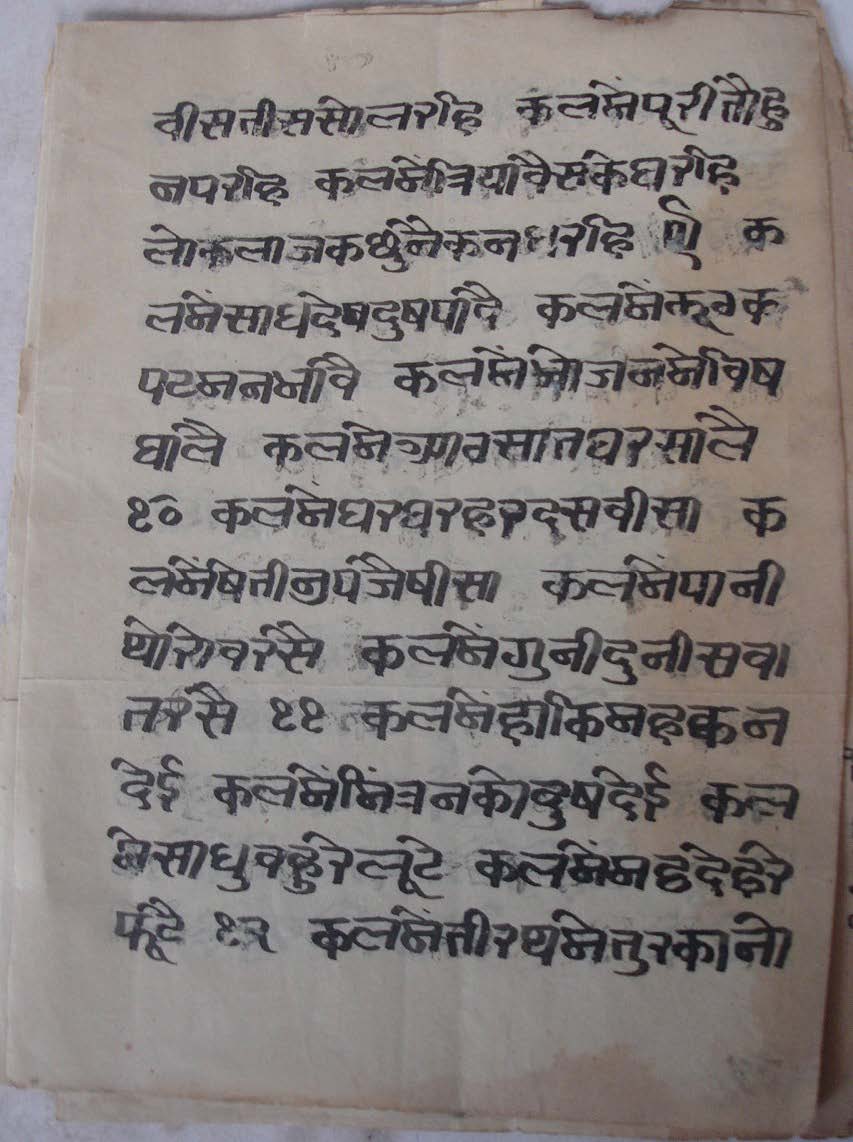 वीसतीससोलरहि कलमैपूरीतौहु
नपरहि कलमैत्रियावैसकेघरहि
लोकलाजकछुनैकनधरहि ९ क
लमैसाधदेषदुषपावै कलमैकूरक
पटमनभावै कलमैभोजनमेविष
घालै कलमे सातघरसालै
१० कलमैघरघरहरदसवीसा क
लमैषेतीनुपजैषीसा कलमैपानी
थोरोवरसै कलमैगुनीदुनीसवा
तरसै ११ कलमैहाकिमहक्कन
देई कलमैमित्रनकोदुषदेई कल
मेसाधुवहुरेलूटे कलमैमहदेहरे
फूटै १२ कलमैतीरथमेतुरकानो